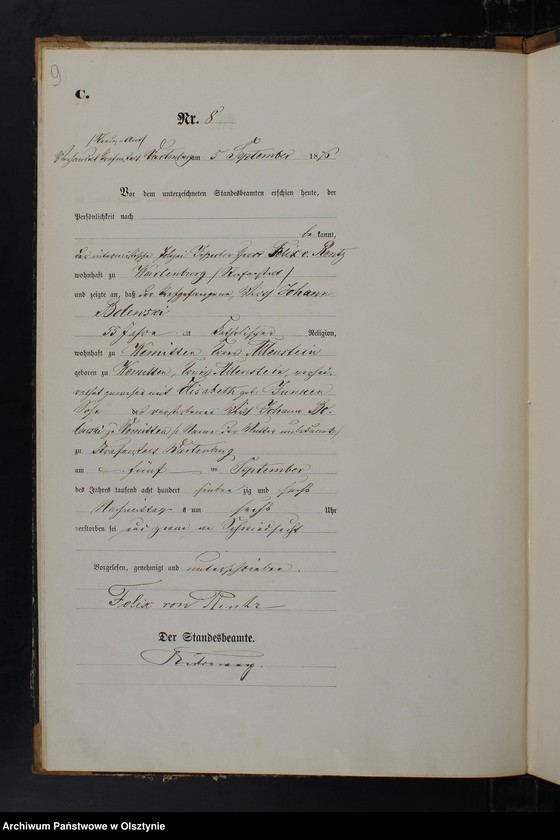 9
C.
Nr. 8
Strafanstalt Wartenburg am 5 September 1876
Vor dem unterzeichneten Standesbeamten erschien heute, der
Persönlichkeit nach
be kannt,
der interimistische Polizei Inspector Felix v. Rentz
wohnhaft zu Wartenburg
und zeigte an, daß der Strafgefangene, Johann
Bolewski
Jahre alt katholischer Religion,
wohnhaft zu Wemitten, Kreis Allenstein
geboren zu Wemitten, Kreis Allenstein, verhei-
rathet gewesen mit Elisabeth geb.
Sohn des verstorbenen Johann Bo-
lewski zu Wemitten, Name der Mutter unbekannt
zu Strafanstalt Wartenburg
am fünf ten September
des Jahres tausend acht hundert sieben zig und sechs
Nachmittags um sechs Uhr
verstorben sei und zwar an Schwindsucht
Vorgelesen, genehmigt und unterschrieben.
Felix von Rentz
Der Standesbeamte.
Archiwum Państwowe w Olsztynie